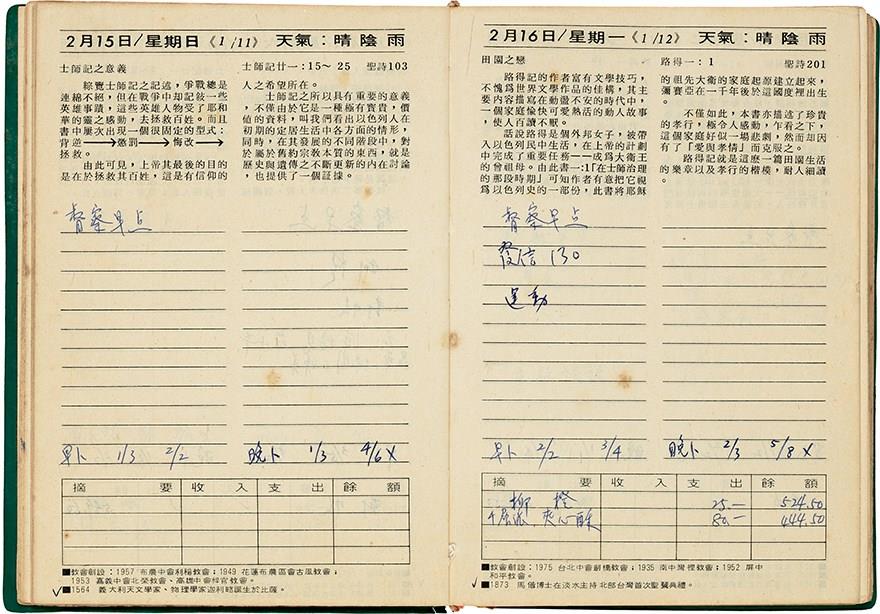 2月15日/星期日《1/11》 天氣:晴陰雨
士師記之意義 士師記廿一:15~25 聖詩103
綜覽士師記之記述,爭戰總是
連綿不絕,但在戰爭中却記錄一些
英雄事蹟,這些英雄人物受了耶和
華的靈之感動,去拯救百姓。而且
書中屢次出現一個很固定的型式:
背逆→懲罰→悔改→
拯救。
由此可見,上帝其最後的目的
是在於拯救其百姓,這是有信仰的
人之希望所在。
士師記之所以具有重要的意義
,不僅由於它是一種極有寶貴,價
值的資料,叫我們看出以色列人在
初期的定居生活中各方面的情形,
同時,在其發展的不同階段中,對
於屬於舊約宗教本質的東西,就是
歷史與遺傳之不斷更新的內在討論
,也提供了一個証據。
督察早点
早卜 1/3 2/2 晚卜 1/3 4/6 X
摘要 收入 支出 餘額
■教會創設:1957 布農中會利稻教會;1949 花蓮布農區會古風教會;
1953 嘉義中會北榮教會、高雄中會梓官教會。
✓■1564 義大利天文學家、物理學家迦利略誕生於比薩。
2月16日/星期一《1/12》 天氣:晴陰雨
田園之戀 路得一:1 聖詩201
路得記的作者富有文學技巧,
不愧爲世界文學作品的佳構,其主
要內容描寫在動盪不安的時代中,
一個家庭愉快可愛熱的動人故事
,使人百讀不厭。
話說路得是個外邦女子,被帶
入以色列民中生活,在上帝的計劃
中完成了重要任務——成爲大衞王
的曾祖母。由此書一:1「在士師治理
的那段時期」可知作者有意把它視
爲以色列史的一部份,此書將耶穌
的祖先大衞的家庭起源建立起來,
彌賽亞在一千年後於這國度裡出生
。
不僅如此,本書亦描述了珍貴
的孝行,極令人感動,乍看之下,
這個家庭好似一場悲劇,然而却因
有了「愛與孝情」而克服之。
路得記就是這麼一篇田園生活
的樂章以及孝行的楷模,耐人細讀
。
督察早点
發信 130
運動
早卜 2/2 3/4 晚卜 2/3 5/8 X
摘要 收入 支出 餘額
柳橙 25.— 524.50
千層派 夾心酥 80.— 444.50
■教會創設:1975 台北中會劍橋教會;1935 南中灣裡教會;1952 屏中
和平教會。
✓■1873 馬偕博士在淡水主持北部台灣首次聖餐典禮。